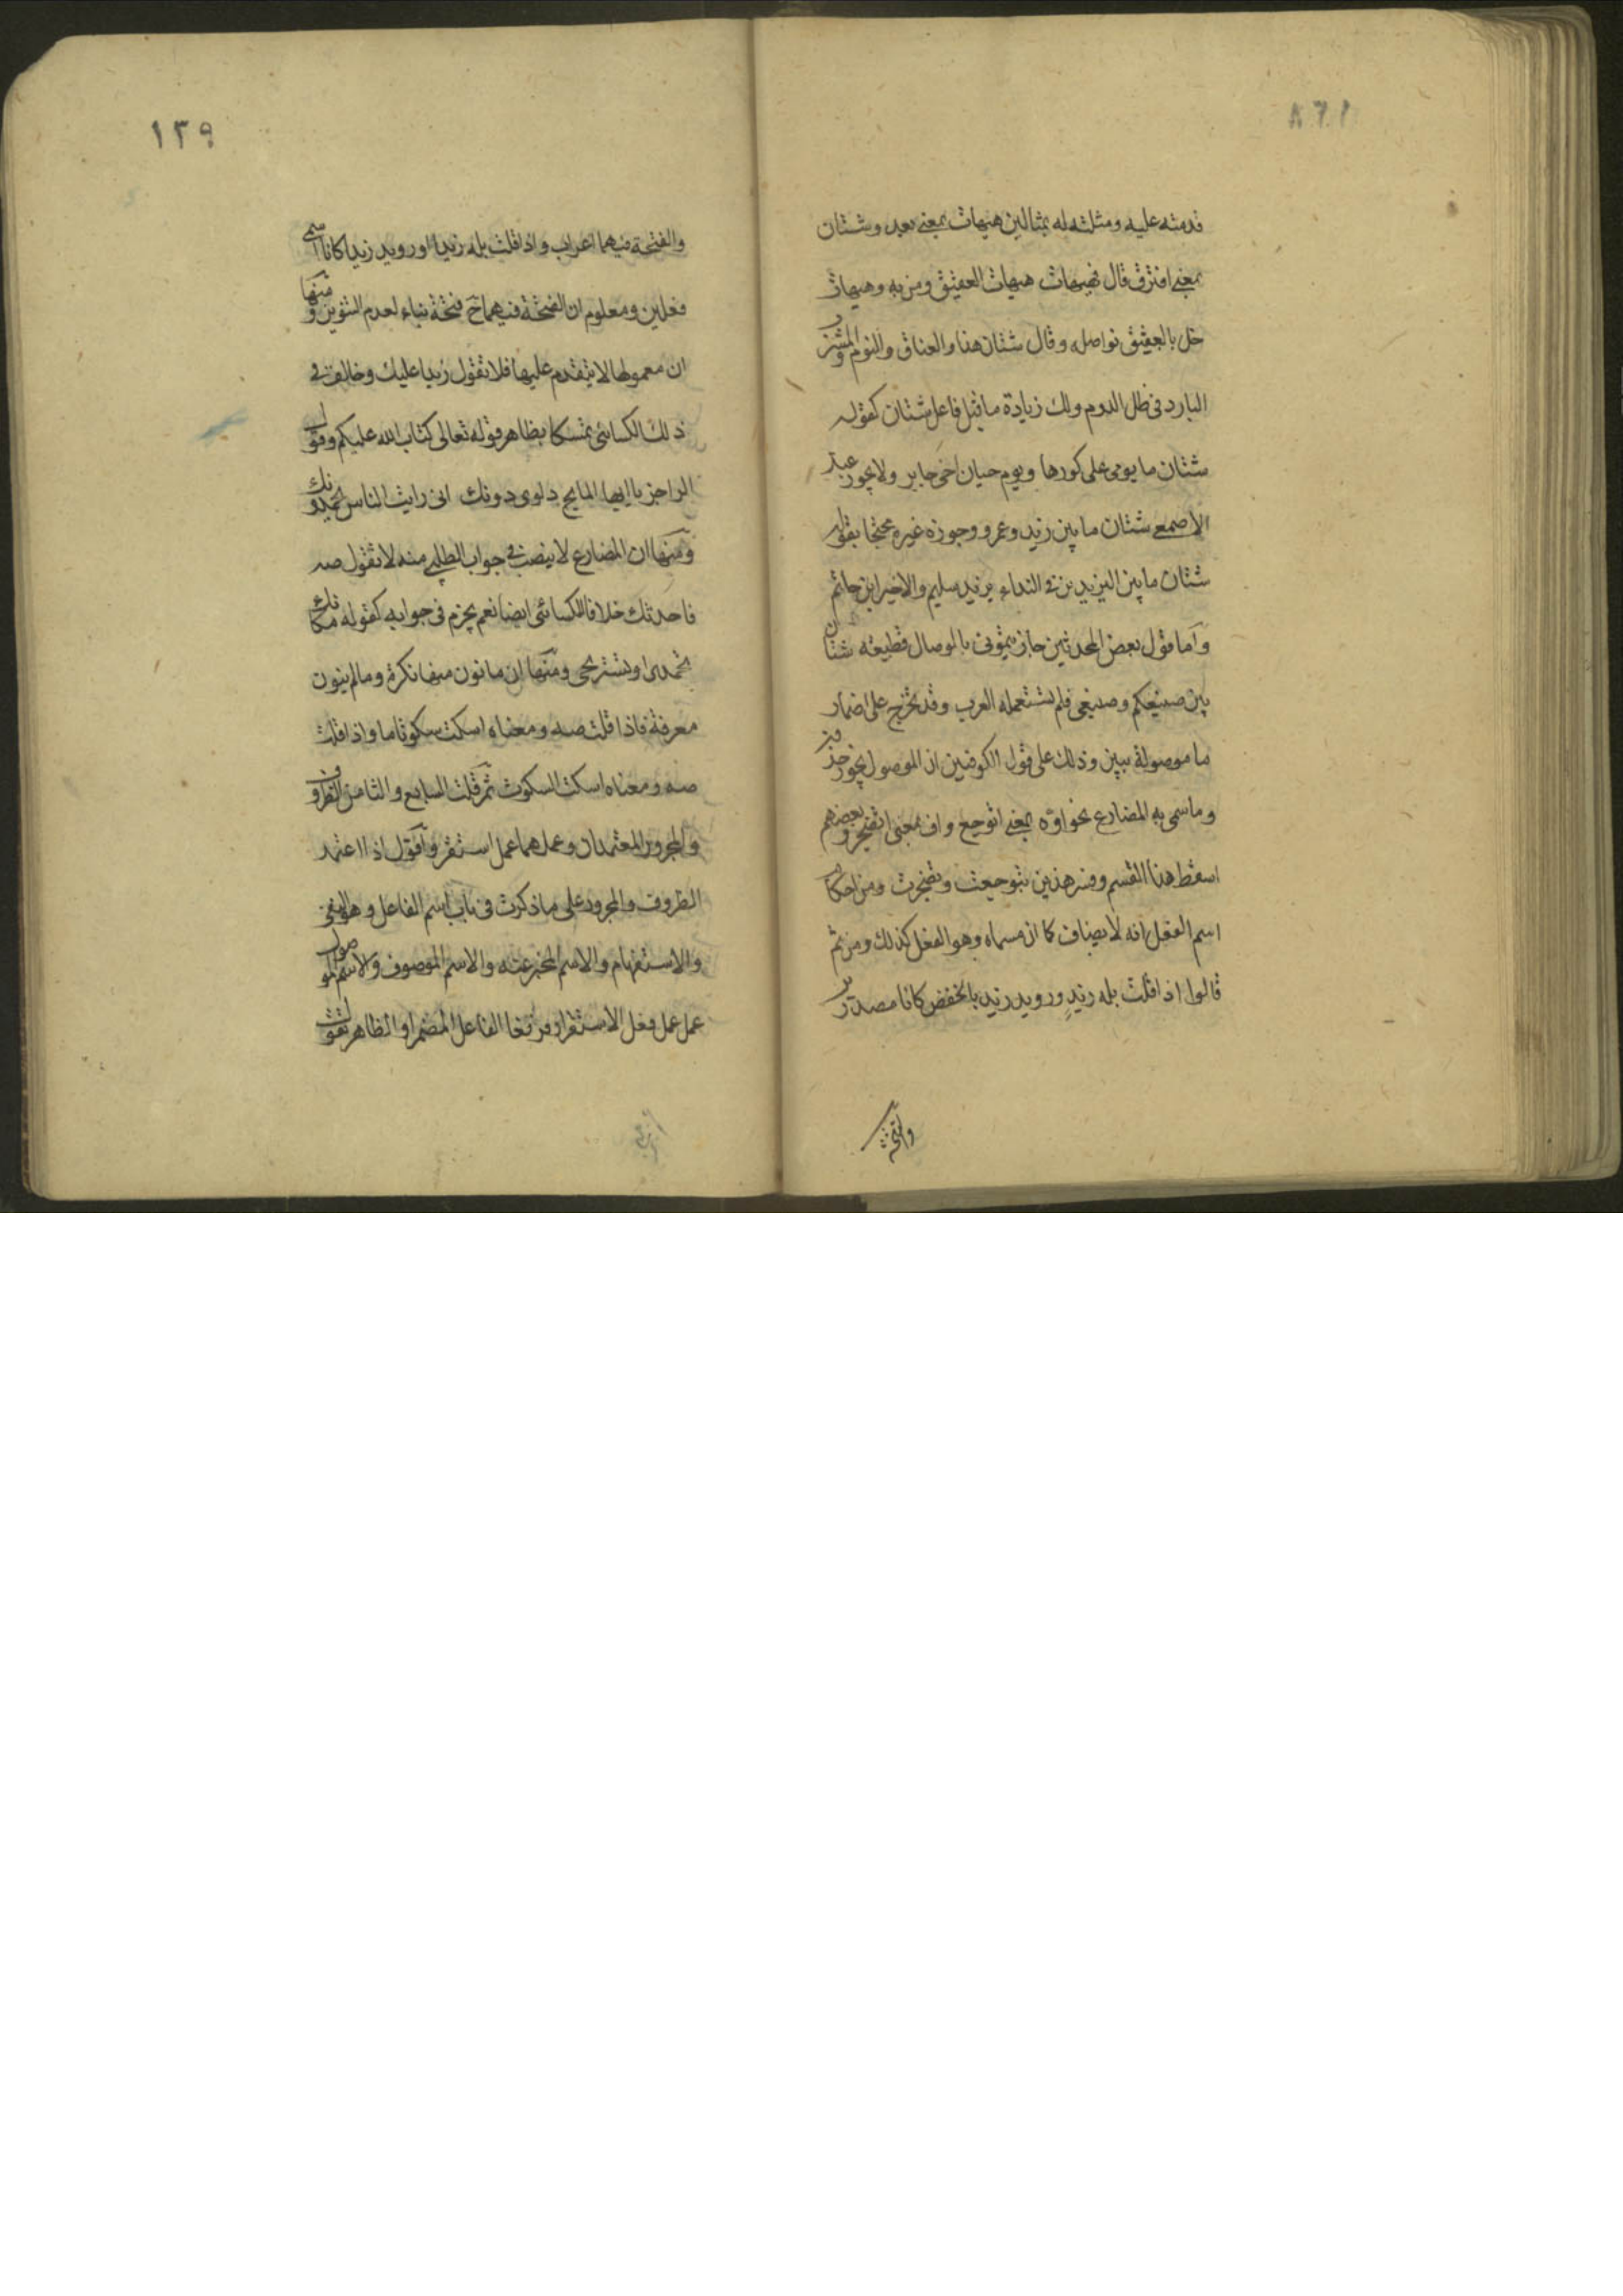 قدمته عليه ومثلته له بمثالين هيهات بمعنى بعد وشتان
بمعنى افترق قال فهيهات هيهات العقيق ومن به وهيهات
خل بالعقيق نواصله وقال شتان هذا والعناق والنوم والمشرب
البارد في ظل الدوم ولك زيادة ما قبل فاعل شتان كقوله
شتان ما يومي على كورها ويوم حيان اخي جابر ولا يجوز عند
الاصمعي شتان ما بين زيد وعمرو وجوزه غيره محتجا بقوله
شتان ما بين اليزيدين في النداء يزيد سليم والاخير ابن حاتم
واما قول بعض المحدثين جازيتموني بالوصال قطيعة شتان
بين صنيعكم وصنيعي فلم تستعمله العرب وقد يخرج على اضمار
ما موصولة ببين وذلك على قول الكوفيين ان الموصول يجوز حذفه
وما سمي به المضارع نحو اوه بمعنى اتوجع واف بمعنى اتضجر وبعضهم
اسقط هذا القسم وفسر هذين بتوجعت وتضجرت ومن احكام
اسم الفعل انه لا يضاف كما ان مسماه وهو الفعل كذلك ومن ثم
قالوا اذا قلت بله زيد ورويد زيد بالخفض كانا مصدرين
والفتحة
١٣٩
والفتحة فيهما اعراب واذا قلت بله زيدا ورويد زيدا كانا اسمي
فعلين ومعلوم ان الفتحة فيهما ح فتحة بناء لعدم التنوين ومنها
ان معمولها لا يتقدم عليها فلا تقول زيدا عليك وخالف في
ذلك الكسائي تمسكا بظاهر قوله تعالى كتاب الله عليكم وقول
الراجز يا ايها المايح دلوي دونك اني رايت الناس يحمدونك
ومنها ان المضارع لا ينصب في جواب الطلبي منه لا تقول صه
فاحدثك خلافا للكسائي ايضا نعم يجزم في جوابه كقوله مكانك
تحمدي او تستريحي ومنها ان ما نون منها نكرة وما لم ينون
معرفة فاذا قلت صه ومعناه اسكت سكوتا ما واذا قلت
صه ومعناه اسكت السكوت ثم قلت السابع والثامن الظرف
والمجرور المعتمدان وعملهما عمل استقر واقول اذا اعتمد
الظروف والمجرور على ما ذكرت في باب اسم الفاعل وهو النفي
والاستفهام والاسم المخبر عنه والاسم الموصوف والاسم الموصول
عمل عمل فعل الاستقرار فرفعا الفاعل المضمر او الظاهر تقول